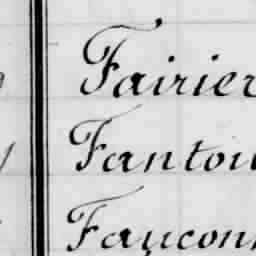 Fairier
Fantou
Fauconn